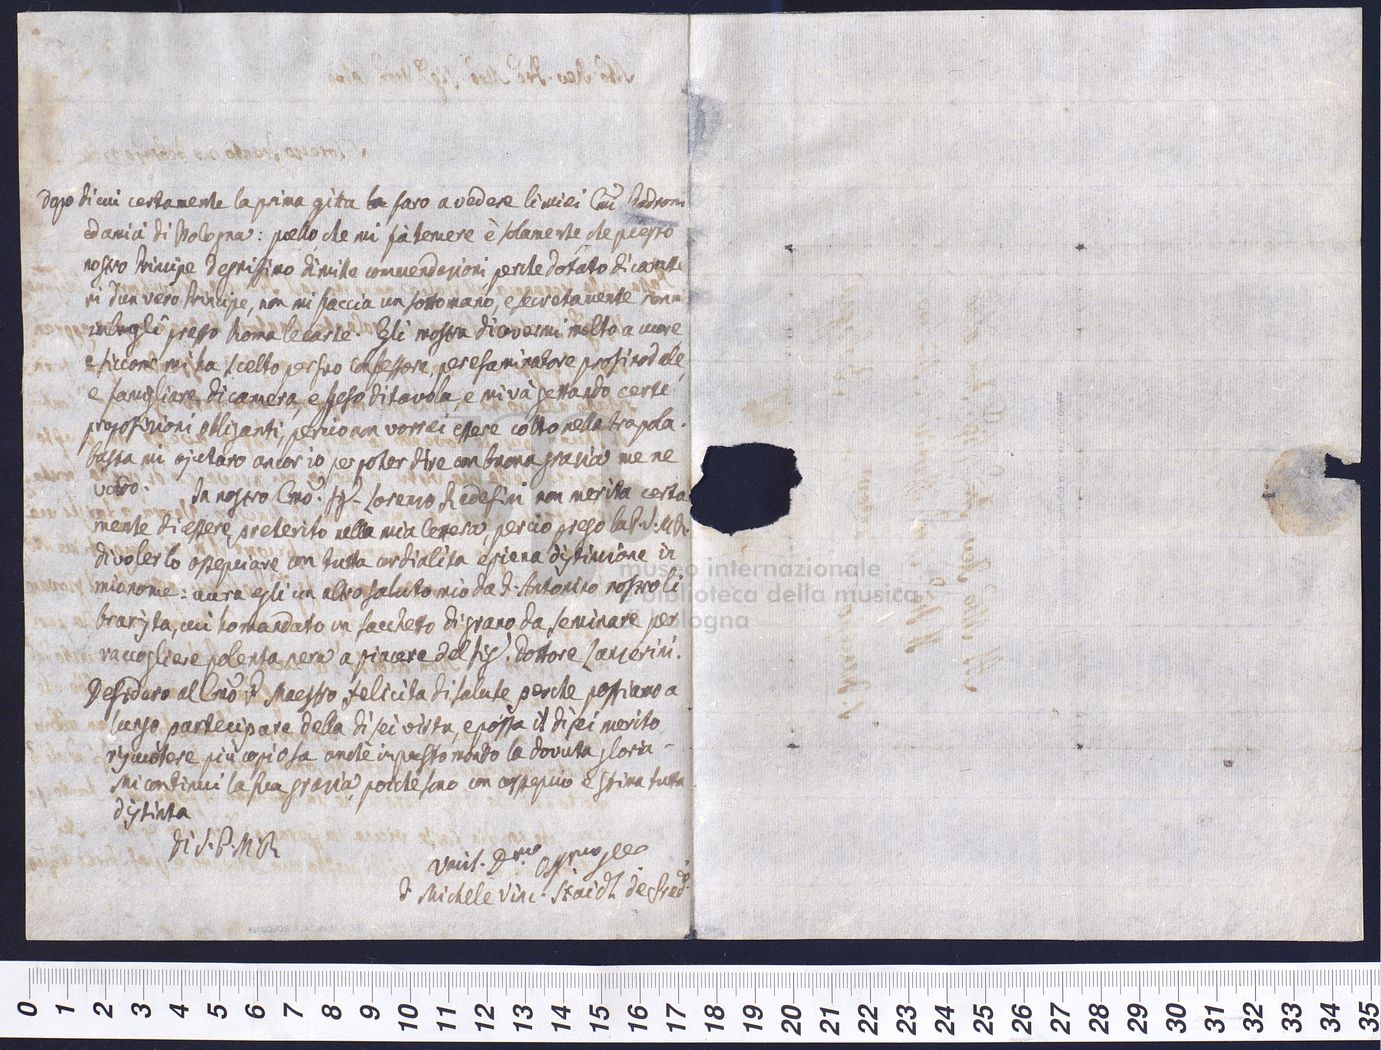 Dopo di cui certamente la prima gita la faro a vedere li miei Cmi Padroni
ed amici di Bologna: quello, che mi fà temere è solamente, che questo
nostro Principe degnissimo di mille commendazioni, perche dotato di caratte
ri d'un vero Principe, non mi faccia un sottomano, e secretamente non m
imbrogli presso Roma le carte. Egli mostra di avermi molto a cuore
e siccome mi ha scelto per suo confessore, per esaminatore prosinodale,
e famigliare di camera, e spesso di tavola, e mi và gettando certe
proposizioni obliganti, percio non vorrei essere colto nella trapola.
basta mi ajutaro ancor io per poter dire con buona grazia me ne
vado. In nostro Cmo. Sig. Lorenzo non merita certa
mente di essere preterito nella mia lettera, percio prego la P. S. M. R.
di volerlo ossequiare con tutta cordialita e piena distinzione in
mio nome: avra egli un altro saluto mio da D. Antonino nostro li
brarista, cui ho mandato un sacchetto di grano da seminare per
raccogliere polenta nera a piacere del Sig. Dottore Zanzerini.
Desidero al Cmo P. Maestro felicita di salute perche possiamo a
lungo partecipare della di lei virtu, e possa il di lei merito
riscuotere più copiosa anche in questo mondo la dovuta gloria
mi continui la sua grazia, poiche sono con ossequio e stima tutta
distinta
Di S. P. M. R.
Umil. Dmo
D. Michele Vinc.
museo internazionale
e biblioteca della musica
di bologna
0 1 2 3 4 5 6 7 8 9 10 11 12 13 14 15 16 17 18 19 20 21 22 23 24 25 26 27 28 29 30 31 32 33 34 35